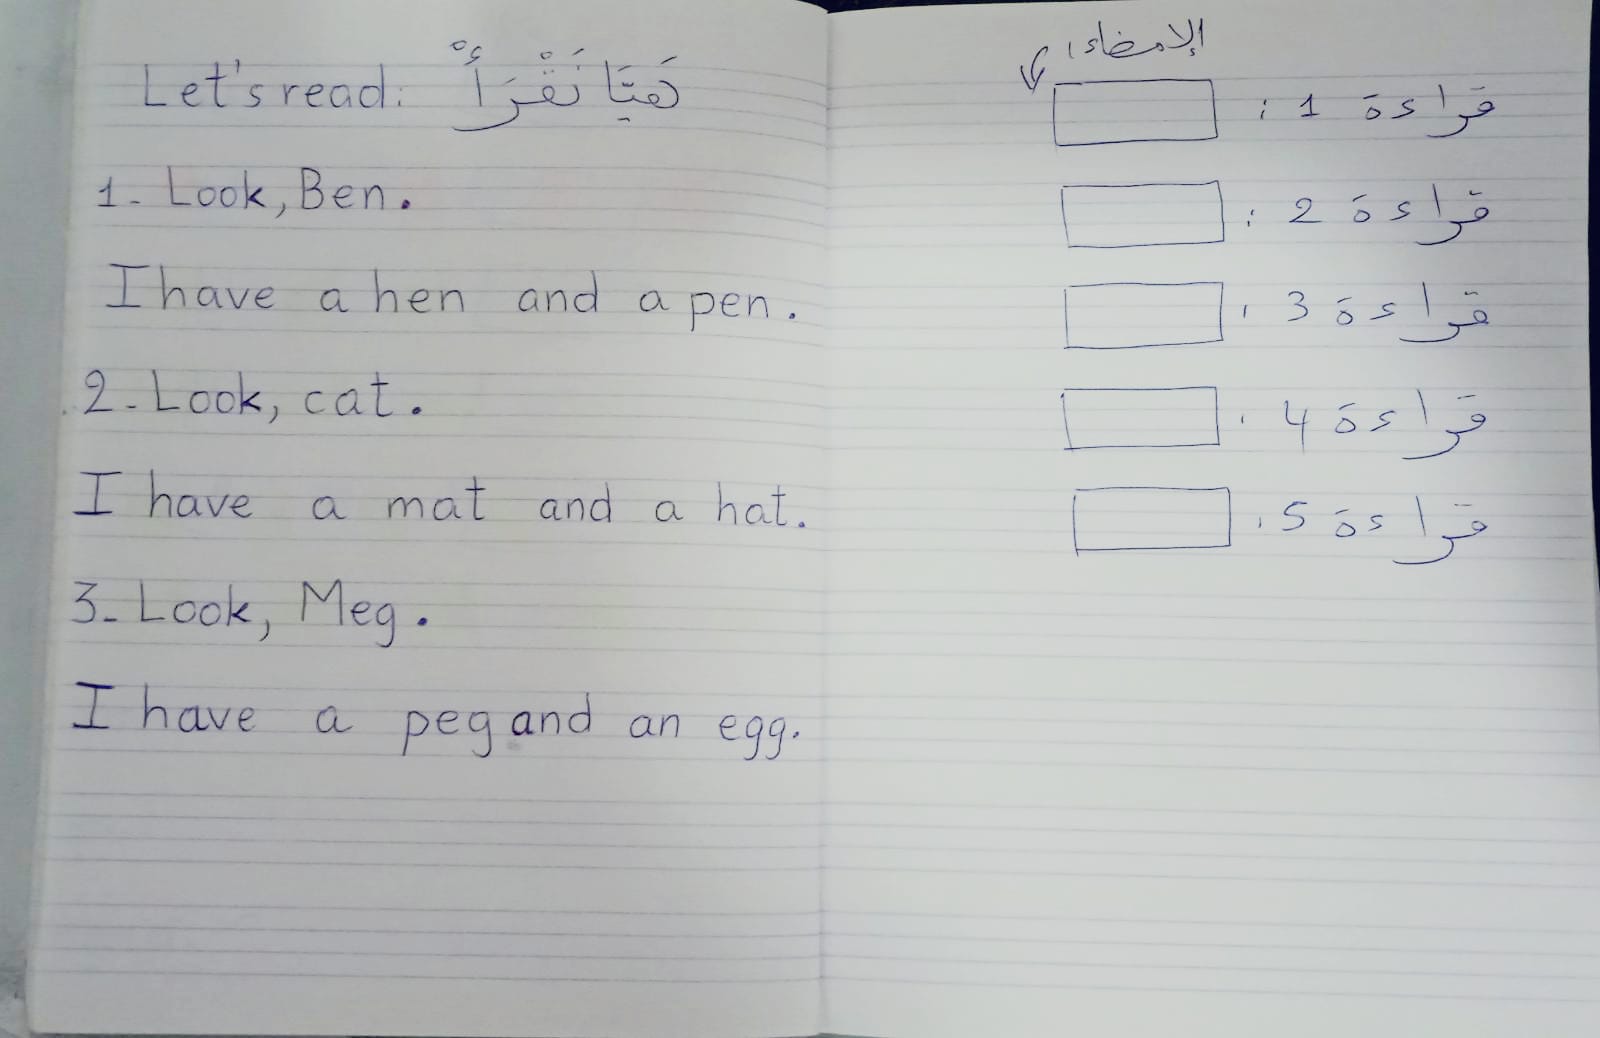 Let's read: هَيَّا نَقْرَأْ
1- Look, Ben.
I have a hen and a pen.
2- Look, cat.
I have a mat and a hat.
3- Look, Meg.
I have a peg and an egg.
الإمضاء:
قراءة 1 :
قراءة 2 :
قراءة 3 :
قراءة 4 :
قراءة 5 :